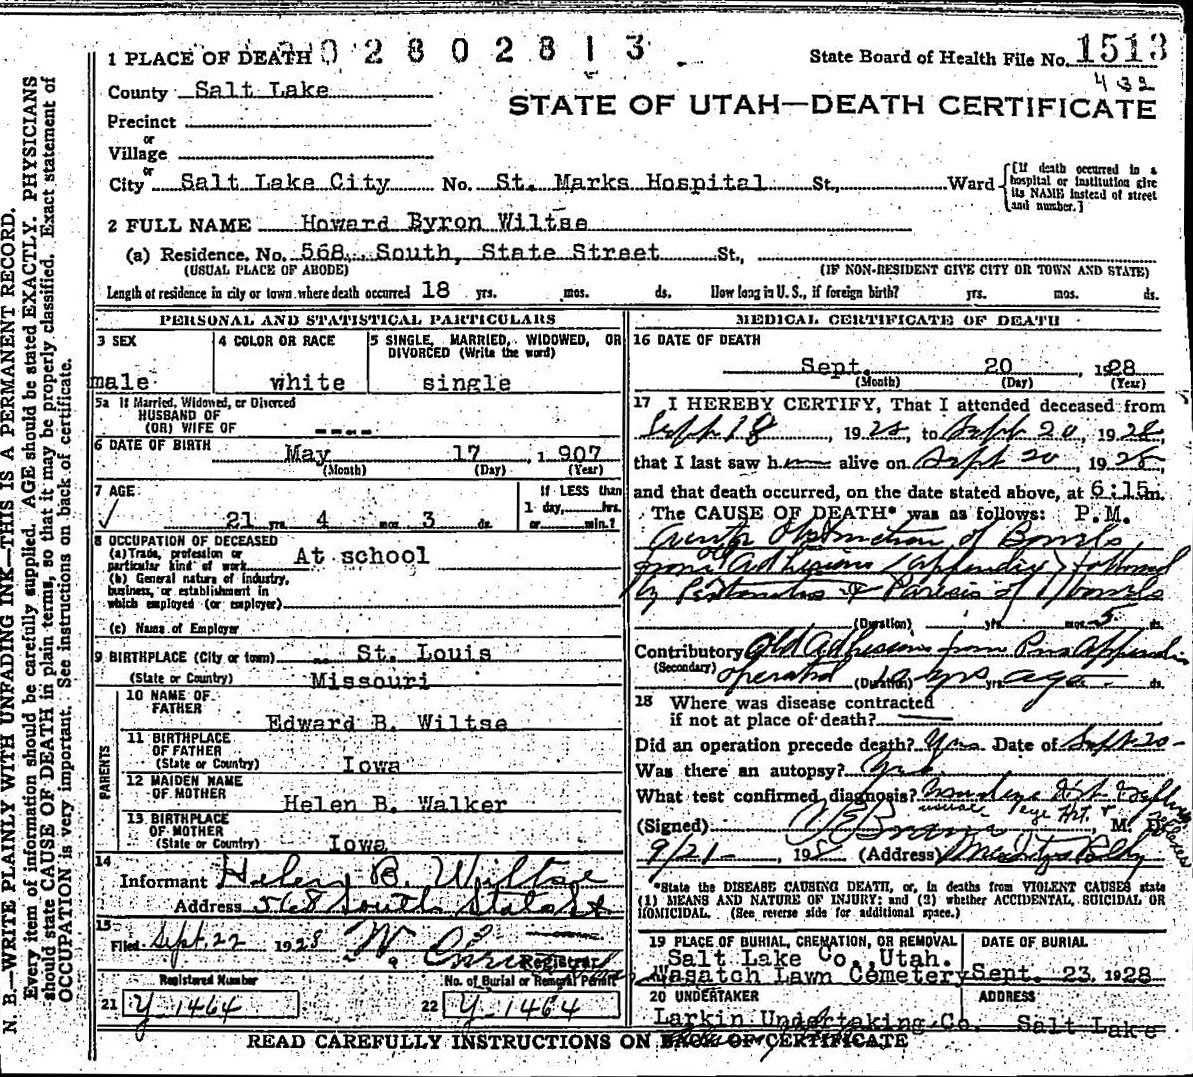 N. B.—WRITE PLAINLY WITH UNFADING INK—THIS IS A PERMANENT RECORD.
Every item of information should be carefully supplied. AGE should be stated EXACTLY. PHYSICIANS
should state CAUSE OF DEATH in plain terms, so that it may be properly classified. Exact statement of
OCCUPATION is very important. See instructions on back of certificate.
1 PLACE OF DEATH 0 2 8 0 2 8 1 3
State Board of Health File No. 1513
432
County Salt Lake
STATE OF UTAH—DEATH CERTIFICATE
Precinct
or
Village
or
City Salt Lake City No. St. Marks Hospital St., Ward
[If death occurred in a
hospital or institution give
its NAME instead of street
and number.]
2 FULL NAME Howard Byron Wiltse
(a) Residence. No. 568 South, State Street St.,
(USUAL PLACE OF ABODE) (IF NON-RESIDENT GIVE CITY OR TOWN AND STATE)
Length of residence in city or town where death occurred 18 yrs. mos. ds. How long in U. S., if foreign birth? yrs. mos. ds.
PERSONAL AND STATISTICAL PARTICULARS
3 SEX
male
4 COLOR OR RACE
white
5 SINGLE, MARRIED, WIDOWED, OR
DIVORCED (Write the word)
single
5a If Married, Widowed, or Divorced
HUSBAND OF
(OR) WIFE OF ----
6 DATE OF BIRTH May 17 1907
(Month) (Day) (Year)
7 AGE
21 yrs. 4 mos. 3 ds.
If LESS than
1 day, hrs.
or min.?
8 OCCUPATION OF DECEASED
(a) Trade, profession or
particular kind of work At school
(b) General nature of industry,
business, or establishment in
which employed (or employer)
(c) Name of Employer
9 BIRTHPLACE (City or town) St. Louis
(State or Country) Missouri
PARENTS
10 NAME OF
FATHER
Edward B. Wiltse
11 BIRTHPLACE
OF FATHER
(State or Country) Iowa
12 MAIDEN NAME
OF MOTHER
Helen B. Walker
13 BIRTHPLACE
OF MOTHER
(State or Country) Iowa
14
Informant Helen B. Wiltse
Address 568 South State St
15
Filed Sept 22 1928
Registrar
Registered Number
21 Y 1464
No. of Burial or Removal Permit
22 Y 1464
MEDICAL CERTIFICATE OF DEATH
16 DATE OF DEATH
Sept. 20 1928
(Month) (Day) (Year)
17 I HEREBY CERTIFY, That I attended deceased from
Sept 18, 1928, to Sept 20, 1928,
that I last saw h alive on Sept 20, 1928,
and that death occurred, on the date stated above, at 6:15 m.
The CAUSE OF DEATH* was as follows: P.M.
Obstruction of Bowels
from Adhesions (appendix) followed
by Peritonitis & Paresis of Bowels
(Duration) yrs. mos. 5 ds.
Contributory old Adhesions from
(Secondary) operated yrs ago
(Duration) yrs. mos. ds.
18 Where was disease contracted
if not at place of death?
Did an operation precede death? Yes. Date of Sept 20
Was there an autopsy?
What test confirmed diagnosis?
(Signed) M. D.
9/21, 19 (Address)
*State the DISEASE CAUSING DEATH, or, in deaths from VIOLENT CAUSES state
(1) MEANS AND NATURE OF INJURY; and (2) whether ACCIDENTAL, SUICIDAL OR
HOMICIDAL. (See reverse side for additional space.)
19 PLACE OF BURIAL, CREMATION, OR REMOVAL
Salt Lake Co., Utah.
Wasatch Lawn Cemetery
DATE OF BURIAL
Sept. 23. 1928
20 UNDERTAKER
Larkin Undertaking Co.
ADDRESS
Salt Lake
READ CAREFULLY INSTRUCTIONS ON BACK OF CERTIFICATE